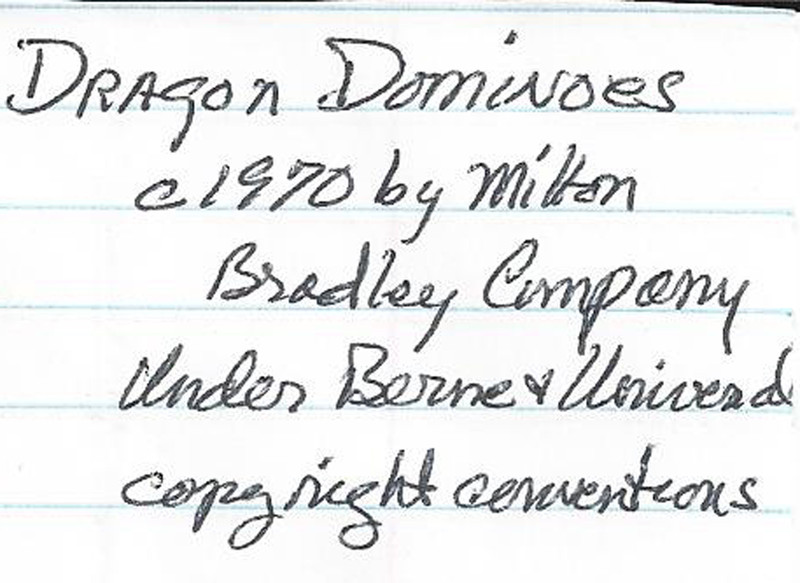 DRAGON DOMINOES
c 1970 by Milton
Bradley Company
Under Berne & Universal
copyright conventions